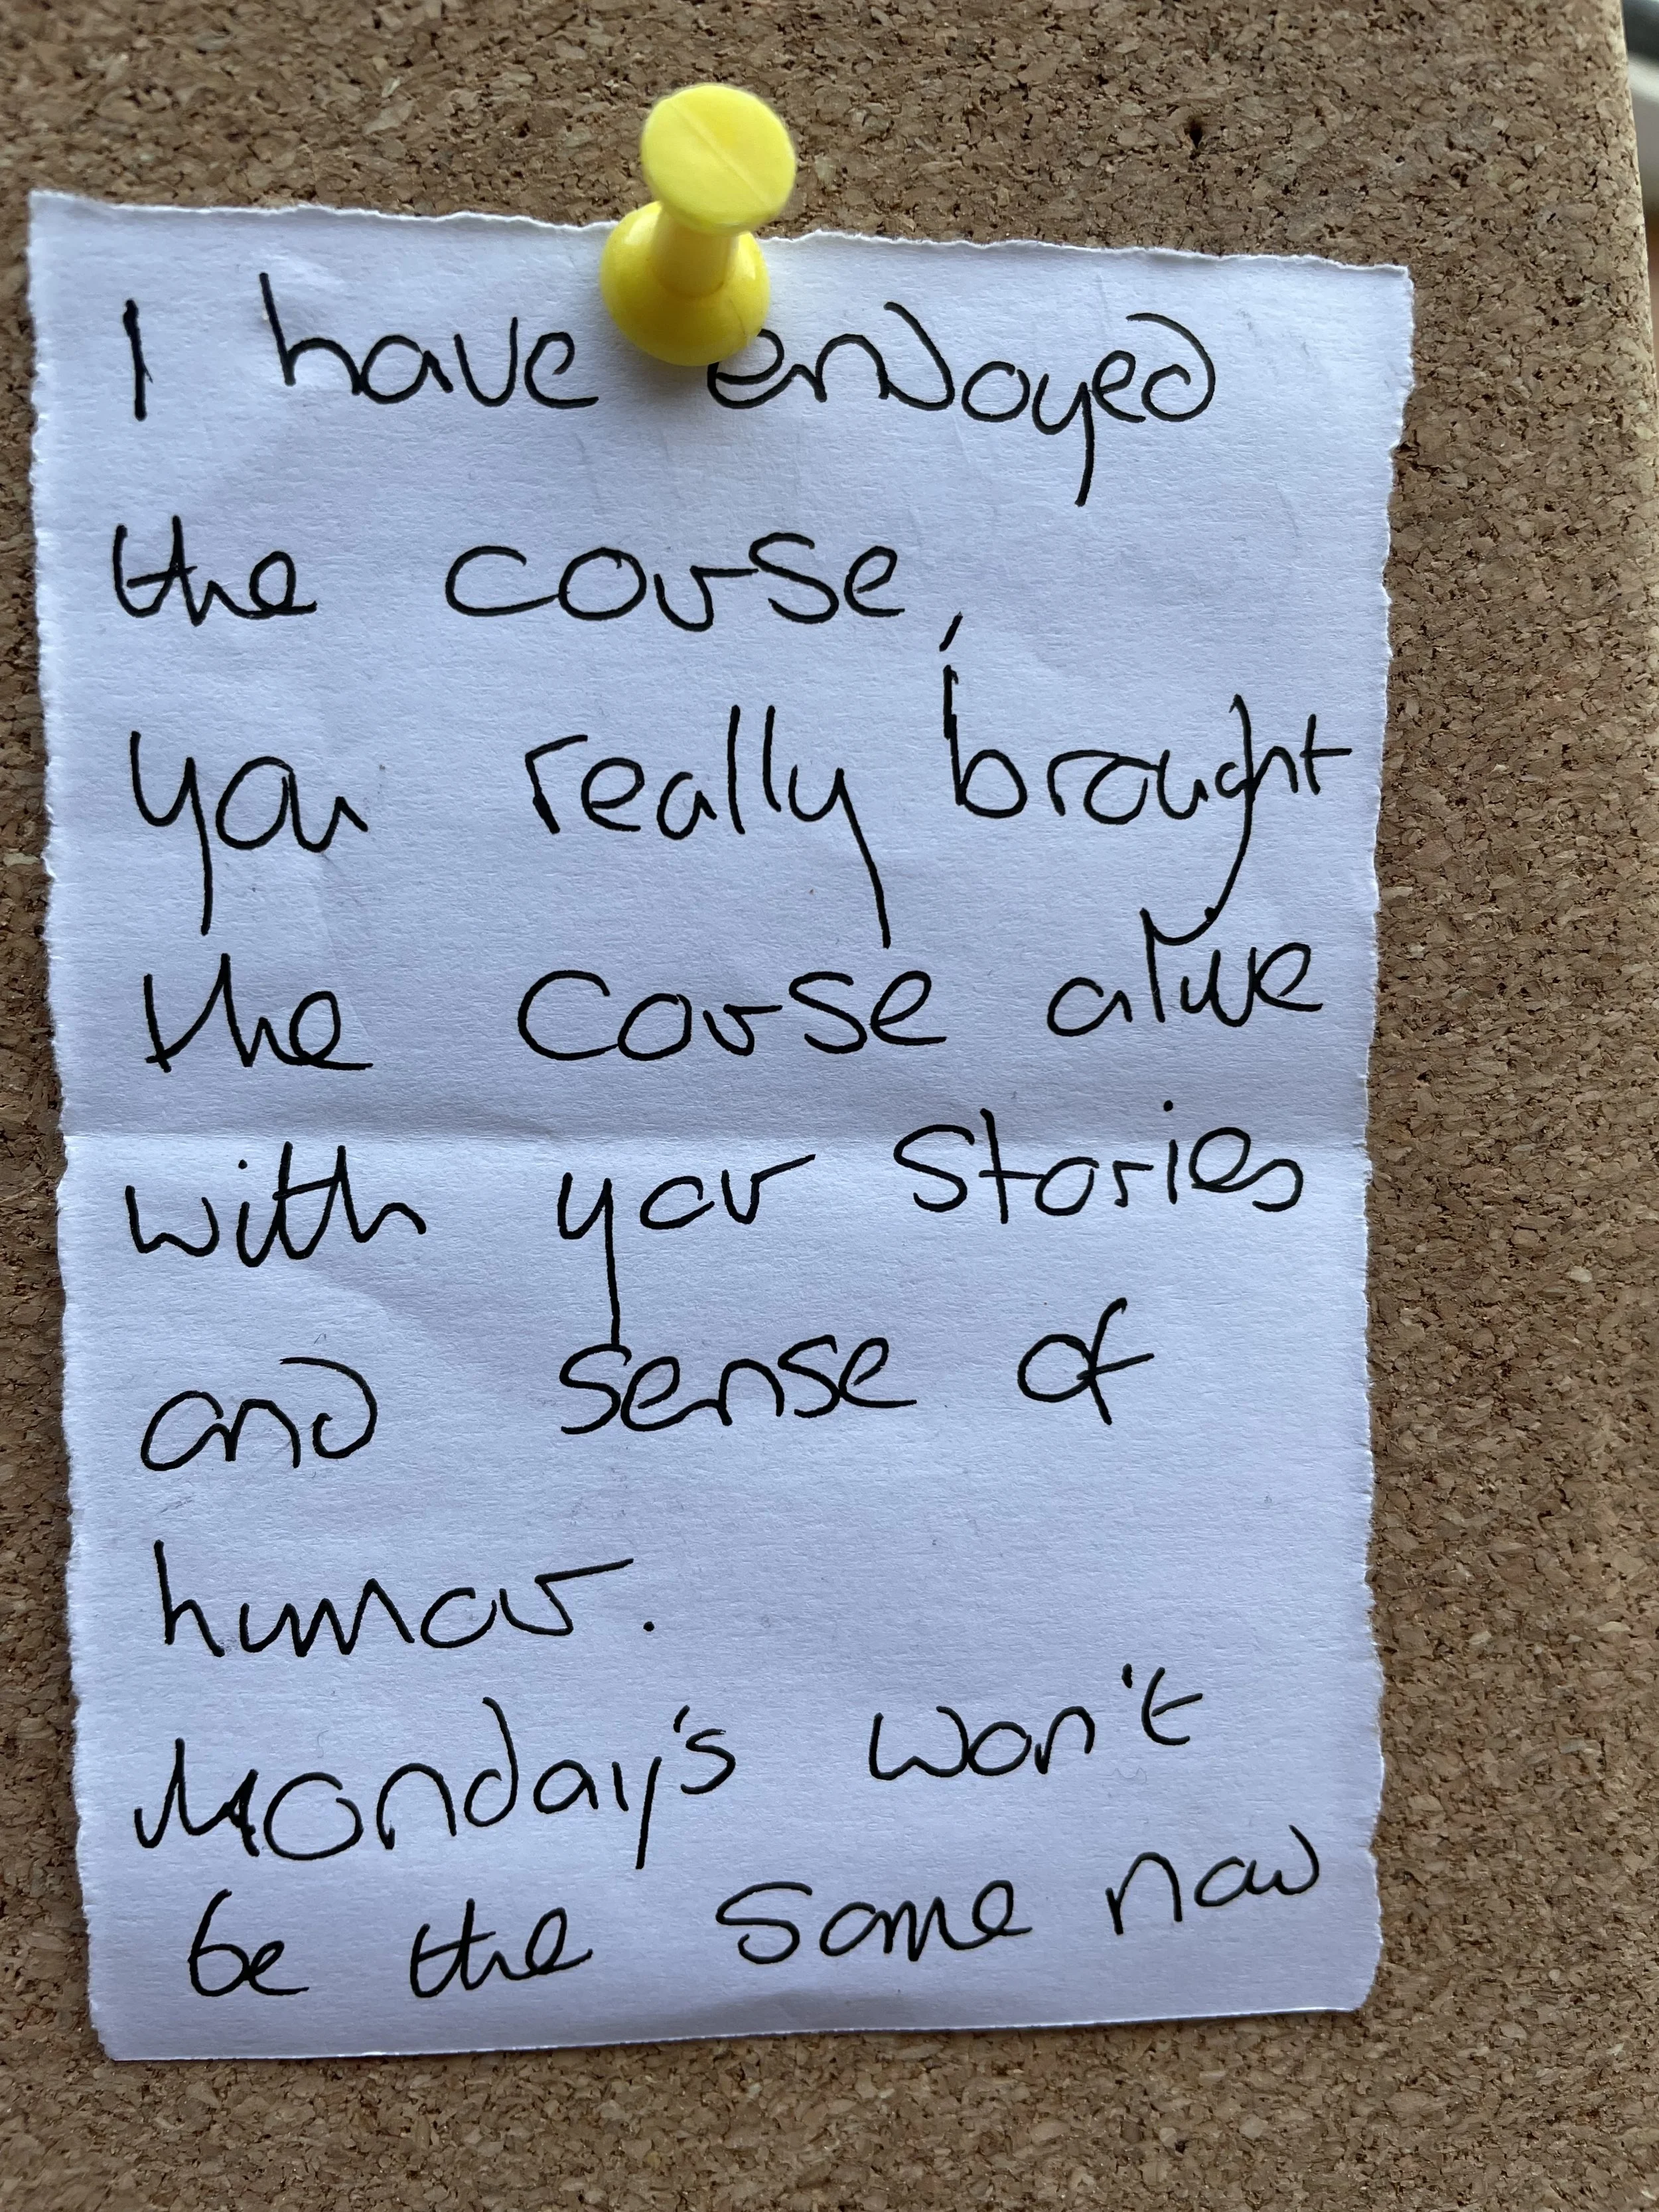 I have enjoyed
the course,
you really brought
the course alive
with your stories
and sense of
humour.
Monday's won't
be the same now